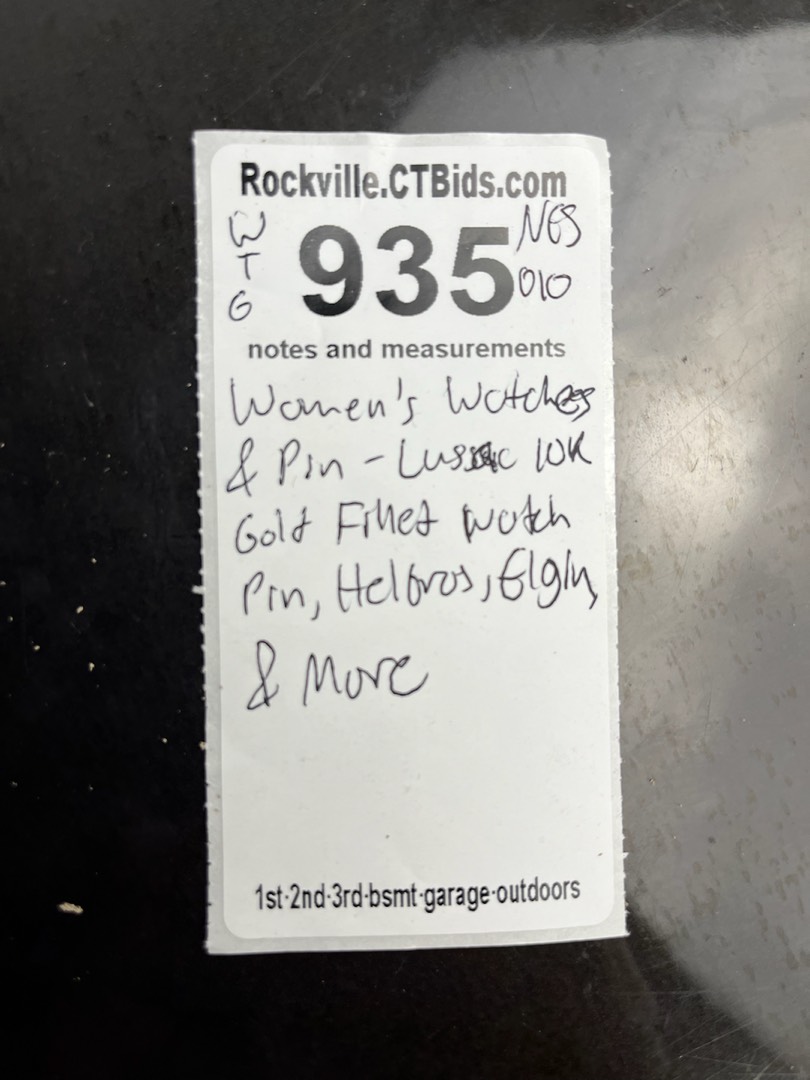 Rockville.CTBids.com
W
T
G
935
NGS
010
notes and measurements
Women's Watches
& Pin - 10K
Gold Filled Watch
Pin, Helbros, Elgin,
& More
1st·2nd·3rd·bsmt·garage·outdoors